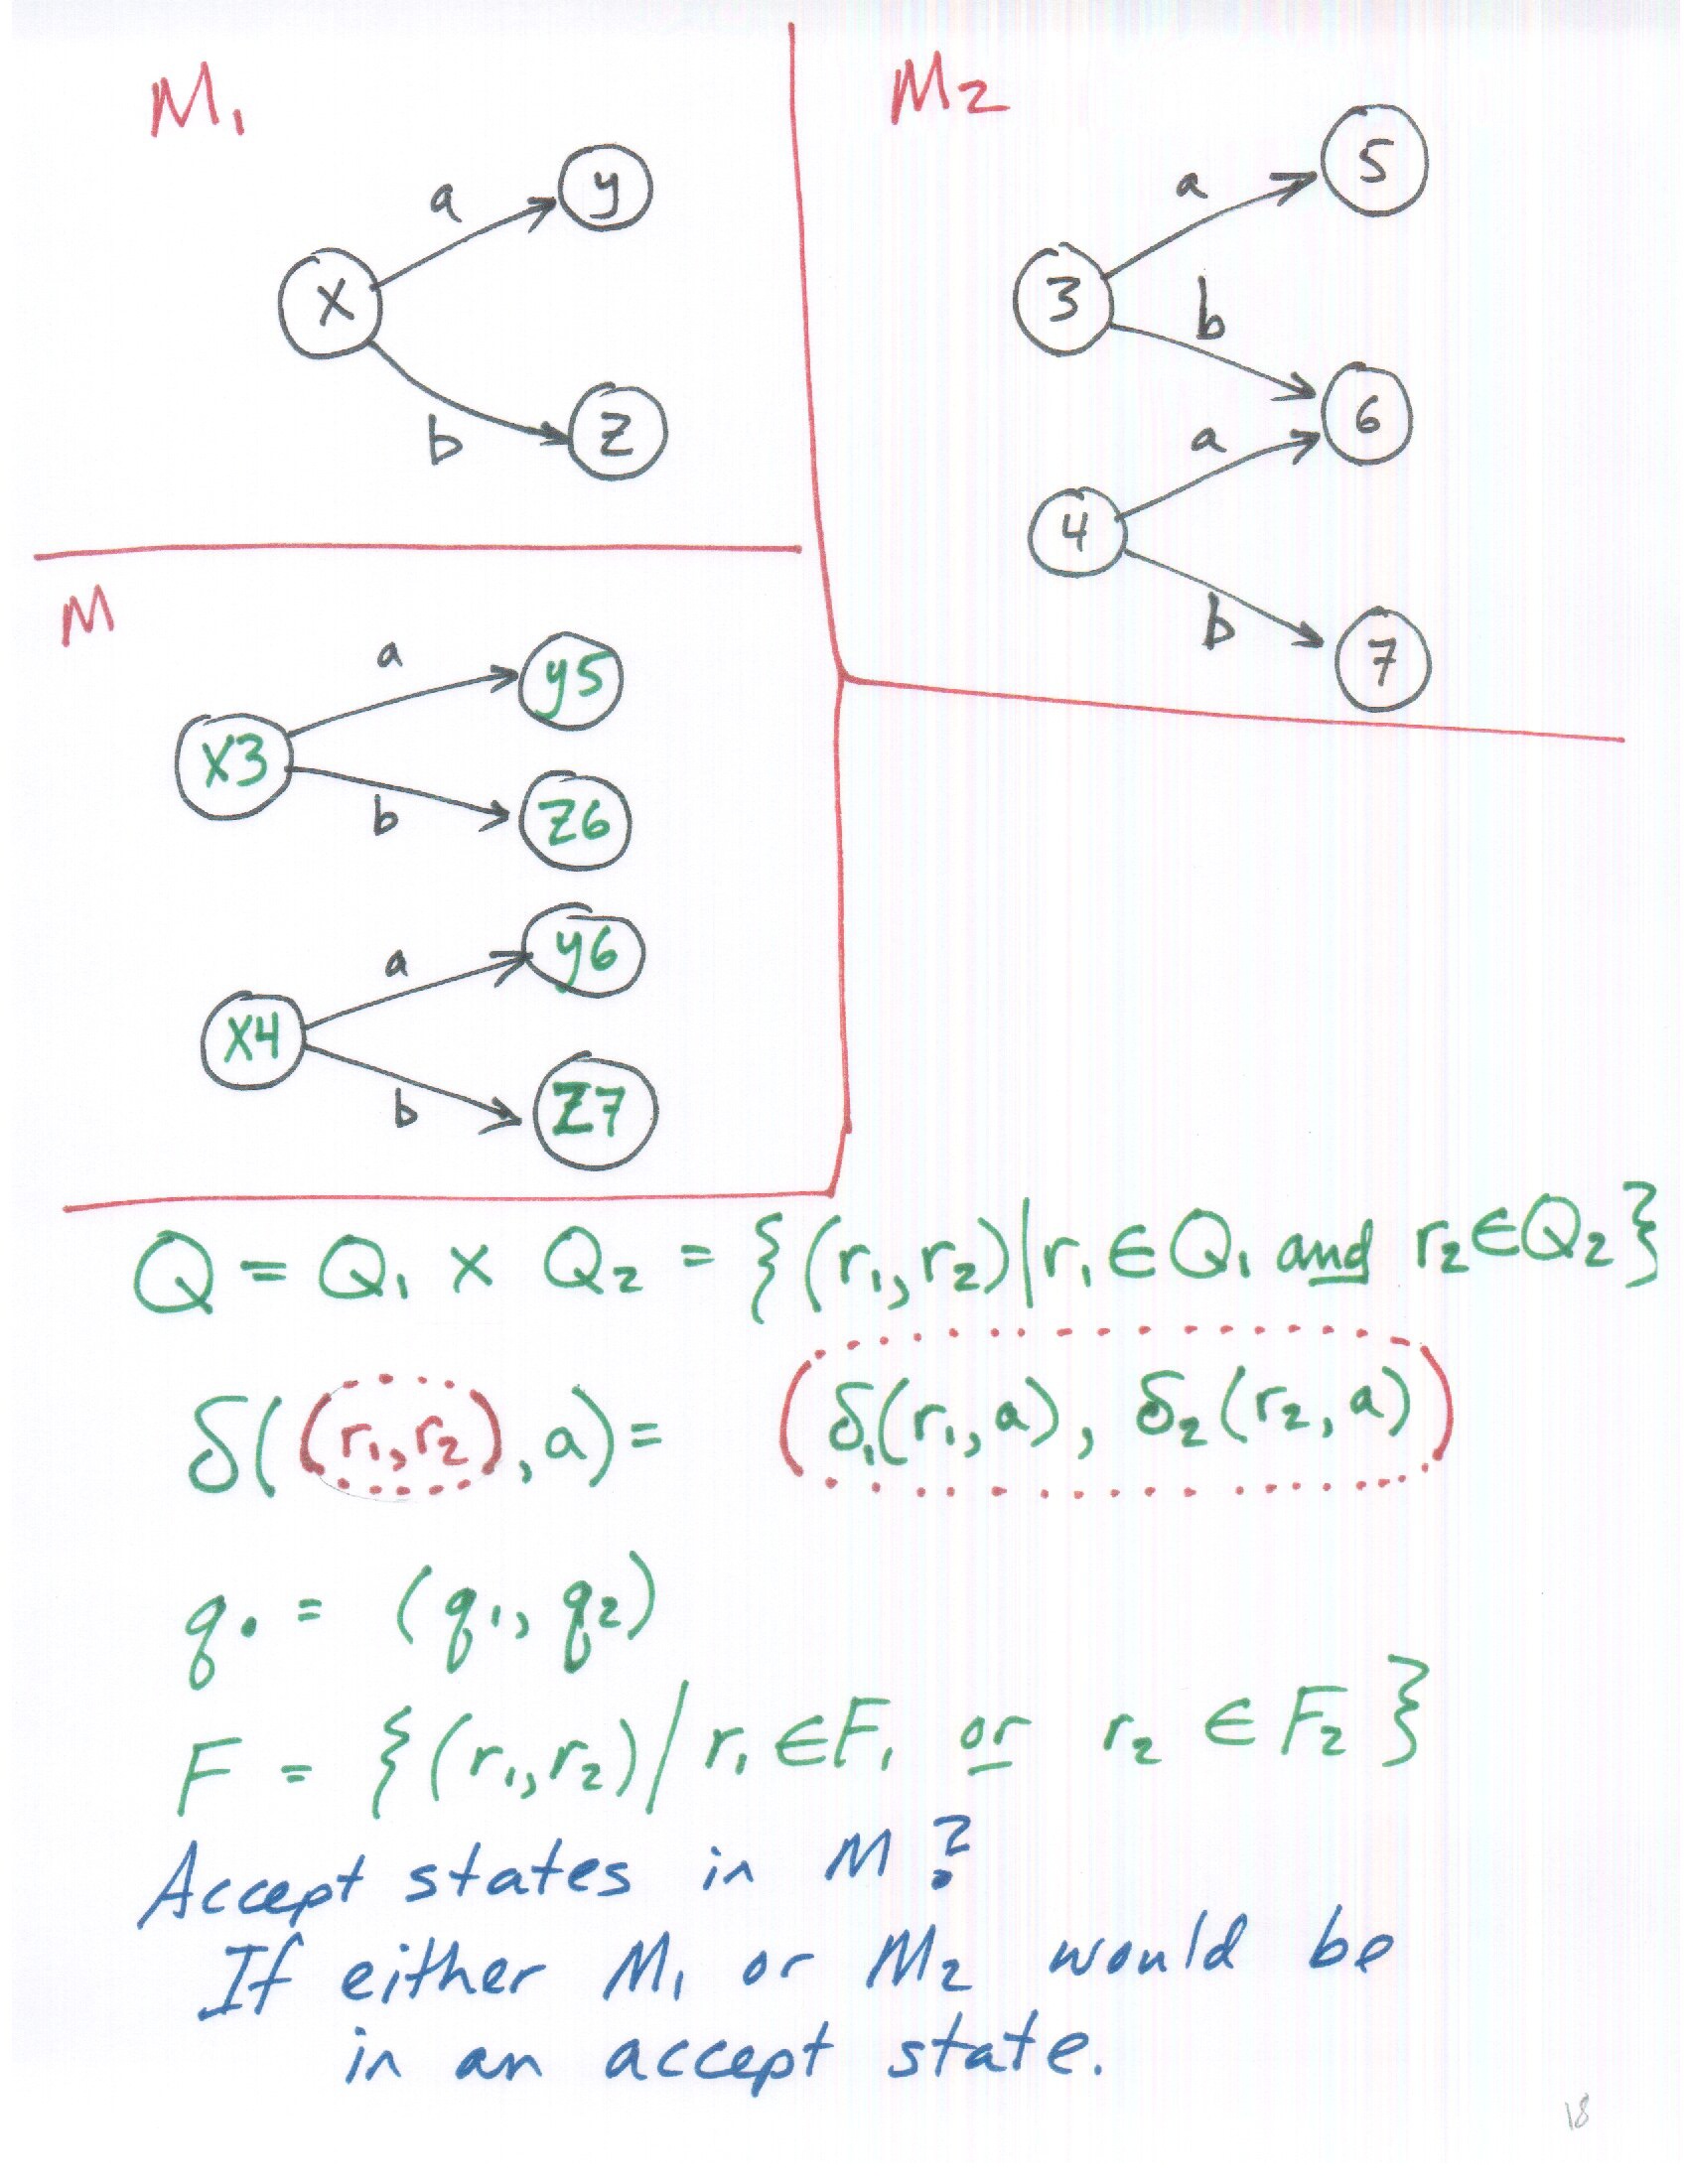 M₁
a
y
x
b
z
M2
a
5
3
b
6
a
4
b
7
M
a
y5
x3
b
z6
a
y6
x4
b
z7
Q = Q₁ × Q₂ = {(r₁,r₂)|r₁∈Q₁ and r₂∈Q₂}
δ((r₁,r₂),a)= (δ₁(r₁,a), δ₂(r₂,a))
q₀ = (q₁, q₂)
F = {(r₁,r₂)/r₁∈F₁ or r₂∈F₂}
Accept states in M?
If either M₁ or M₂ would be
in an accept state.
18